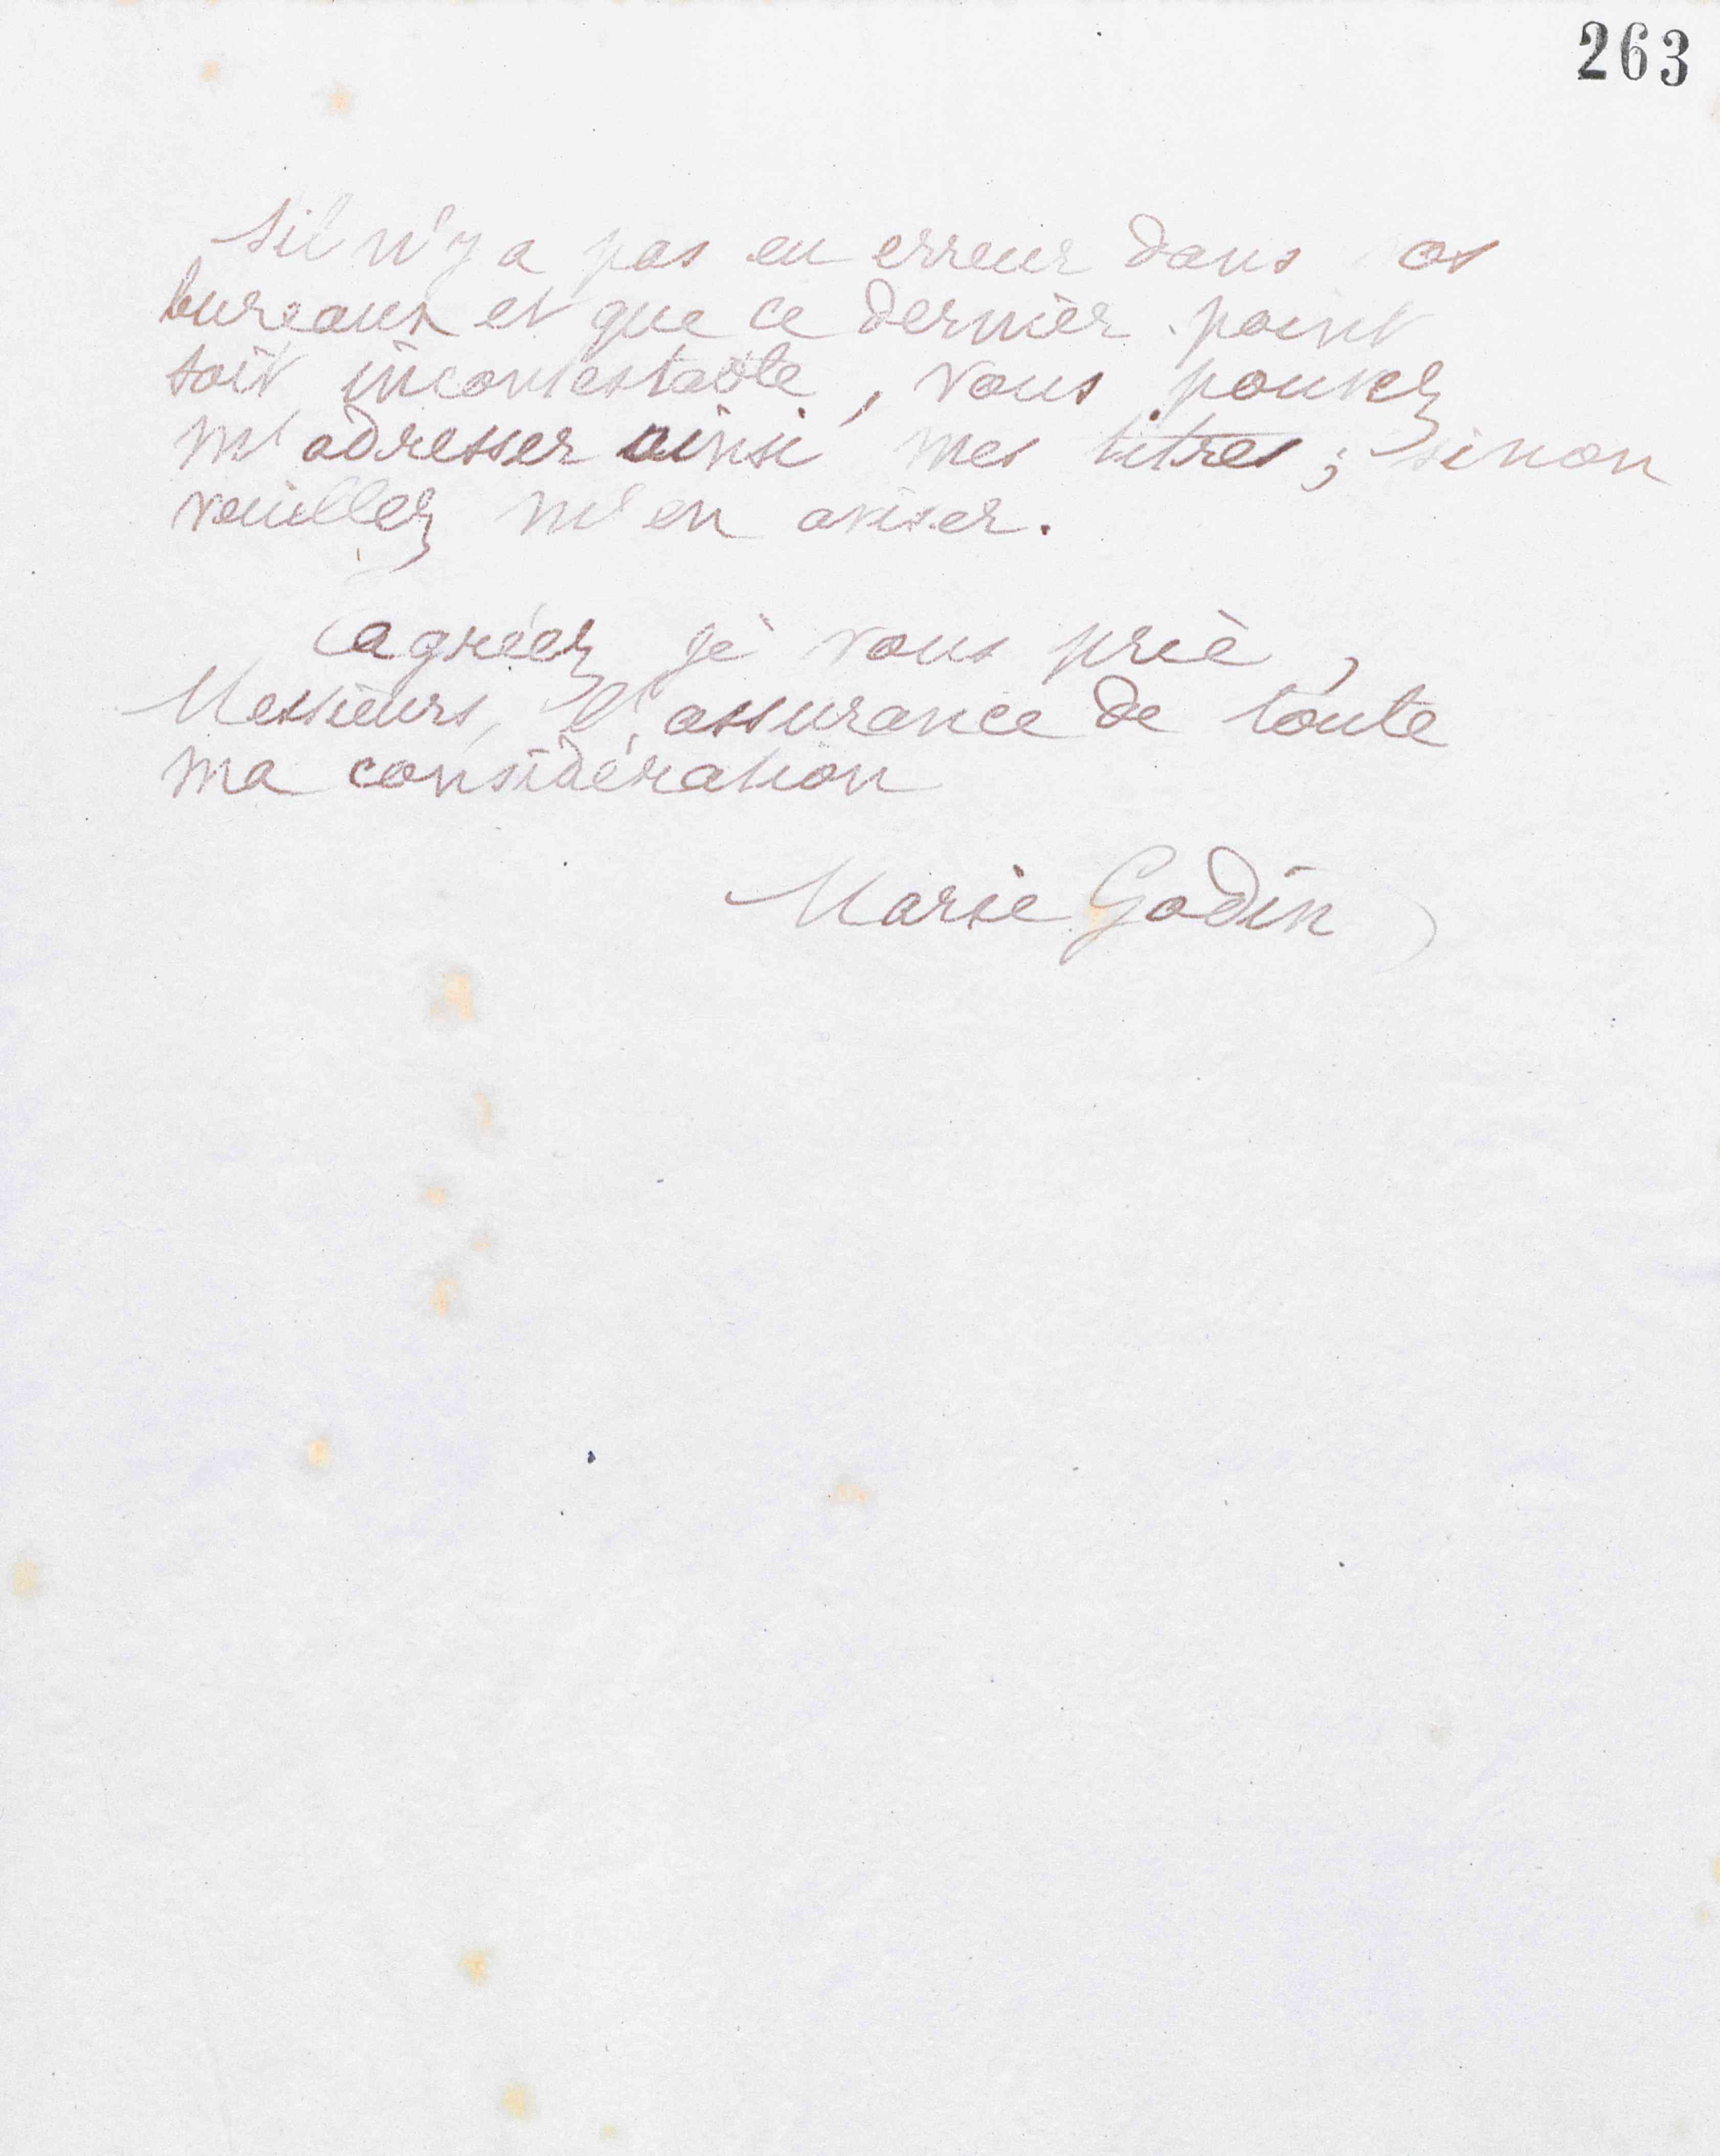 263
S'il n'y a pas eu erreur dans vos
bureaux et que ce dernier point
soit incontestable, vous pouvez
m'adresser ainsi mes titres ; sinon
veuillez m'en aviser.
Agréez, je vous prie,
Messieurs, l'assurance de toute
ma considération
Marie Godin